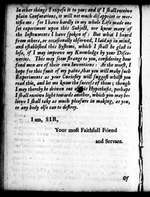 in other things I expose it to you; and if I shall receive
plain Confutations, it will not much disappoint or mor-
tifie me: for I have hardly in my whole Life made one
the Experiment upon this Subject, nor know many of
the Instruments I have spoken of: but what I heard
from others, or occasionally observed, I have reduced to
and established this Systeme, which I shall be glad to
lose, if I may improve my Knowledge by your Disco-
veries. This may seem strange to you, considering how
fond men are of their own Inventions: As to the rest, I
hope for this fruit of my pains, that you will make such
Experiments as your Curiosity will suggest whilst you
read this, and let me know the success of them; though
I may thereby be driven out of this Hypothesis, perhaps
I shall receive light towards another, which you may be-
lieve I shall take as much pleasure in making, as you,
or any body else can to destroy.
I am, SIR,
Your most Faithfull Friend
and Servant.
Of